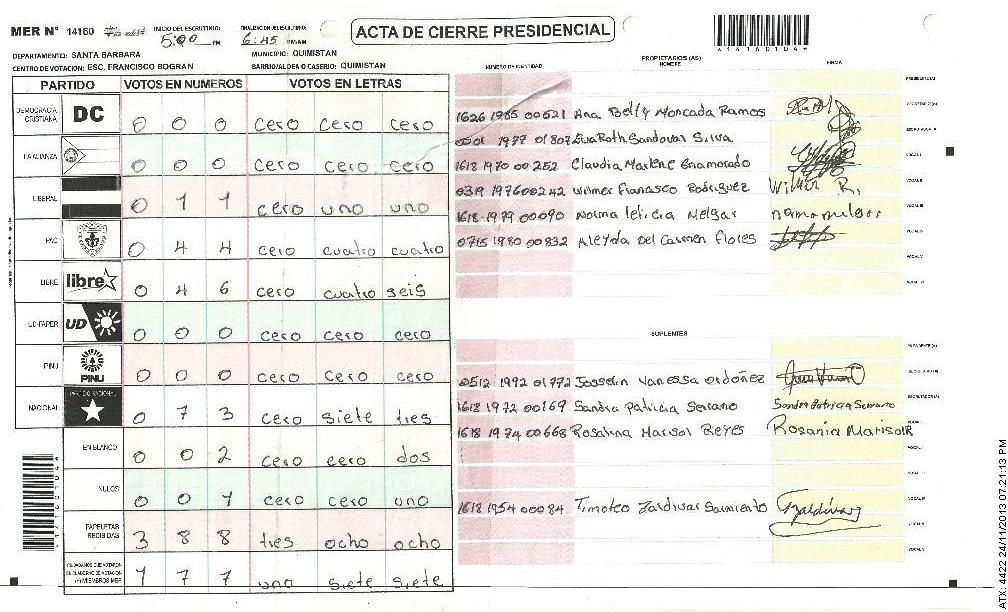 MER N° 14160 INICIO DEL ESCRUTINIO: 5:00 PM FINALIZACION DEL ESCRUTINIO: 6:45 PM/AM
ACTA DE CIERRE PRESIDENCIAL
DEPARTAMENTO: SANTA BARBARA MUNICIPIO: QUIMISTAN
CENTRO DE VOTACION: ESC. FRANCISCO BOGRAN BARRIO/ALDEA O CASERIO: QUIMISTAN
PARTIDO VOTOS EN NUMEROS VOTOS EN LETRAS
DEMOCRACIA CRISTIANA DC 0 0 0 cero cero cero
LA ALIANZA 0 0 0 cero cero cero
LIBERAL 0 1 1 cero uno uno
PAC 0 4 4 cero cuatro cuatro
LIBRE libre 0 4 6 cero cuatro seis
UD-FAPER UD 0 0 0 cero cero cero
PINU PINU 0 0 0 cero cero cero
NACIONAL PARTIDO NACIONAL 0 7 3 cero siete tres
EN BLANCO 0 0 2 cero cero dos
NULOS 0 0 1 cero cero uno
PAPELETAS RECIBIDAS 3 8 8 tres ocho ocho
CIUDADANOS QUE VOTARON EN CUADERNO DE VOTACION (+) MIEMBROS MER 1 7 7 uno siete siete
NUMERO DE IDENTIDAD PROPIETARIOS (AS) NOMBRE FIRMA
PRESIDENTE(A)
1626 1985 00621 Ana Belly Moncada Ramos SECRETARIO(A)
0501 1977 01807 Eva Roth Sandoval Silva ESCRUTADOR(A)
1618 1970 00252 Claudia Marlene Enamorado VOCAL I
0319 1976 00242 Wilmer Francisco Rodriguez Wilmer R. VOCAL II
1618-1979 00090 Norma leticia Melgar VOCAL III
0715 1980 00832 Aleyda Del Carmen Flores VOCAL IV
VOCAL V
VOCAL VI
SUPLENTES
PRESIDENTE (A)
0512 1992 01772 Josselin Vanessa Ordóñez SECRETARIO (A)
1618 1972 00169 Sandra Patricia Serrano Sandra Patricia Serrano ESCRUTADOR(A)
1618 1974 00668 Rosalina Marisol Reyes Rosania MarisolR VOCAL I
VOCAL II
1618 1954 00084 Timoteo Zaldivar Sarmiento Zaldivar VOCAL IV
VOCAL V
ATX: 4422 24/11/2013 07:21:13 PM